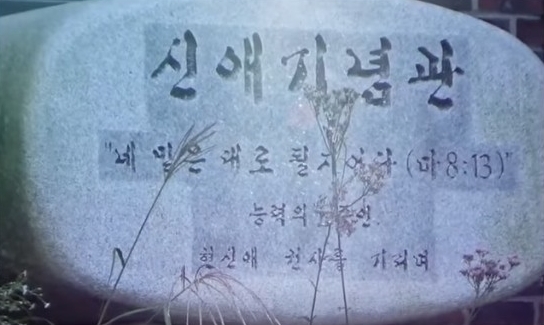 신애기념관
"네 믿은 대로 될지어다 (마 8:13)"
능력의
현신애 권사를 기리며